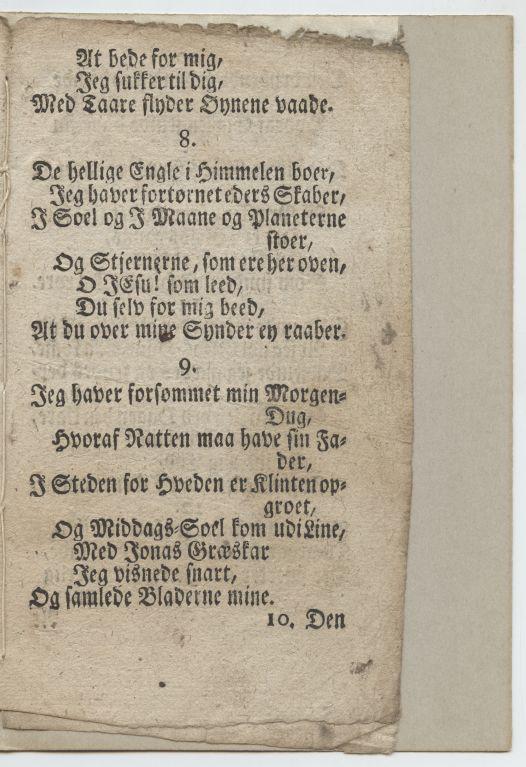 At bede for mig,
Jeg sukker til dig,
Med Taare flyder Øynene vaade.
8.
De hellige Engle i Himmelen boer,
Jeg haver fortørnet eders Skaber,
J Soel og J Maane og Planeterne
stoer,
Og Stjernerne, som ere her oven,
O JEsu! som leed,
Du selv for mig beed,
At du over mine Synder ey raaber.
9.
Jeg haver forsømmet min Morgen-
Dug,
Hvoraf Natten maa have sin Fa-
der,
J Steden for Hveden er Klinten op-
groet,
Og Middags-Soel kom udi Line,
Med Jonas Græskar
Jeg visnede snart,
Og samlede Bladerne mine.
10. Den